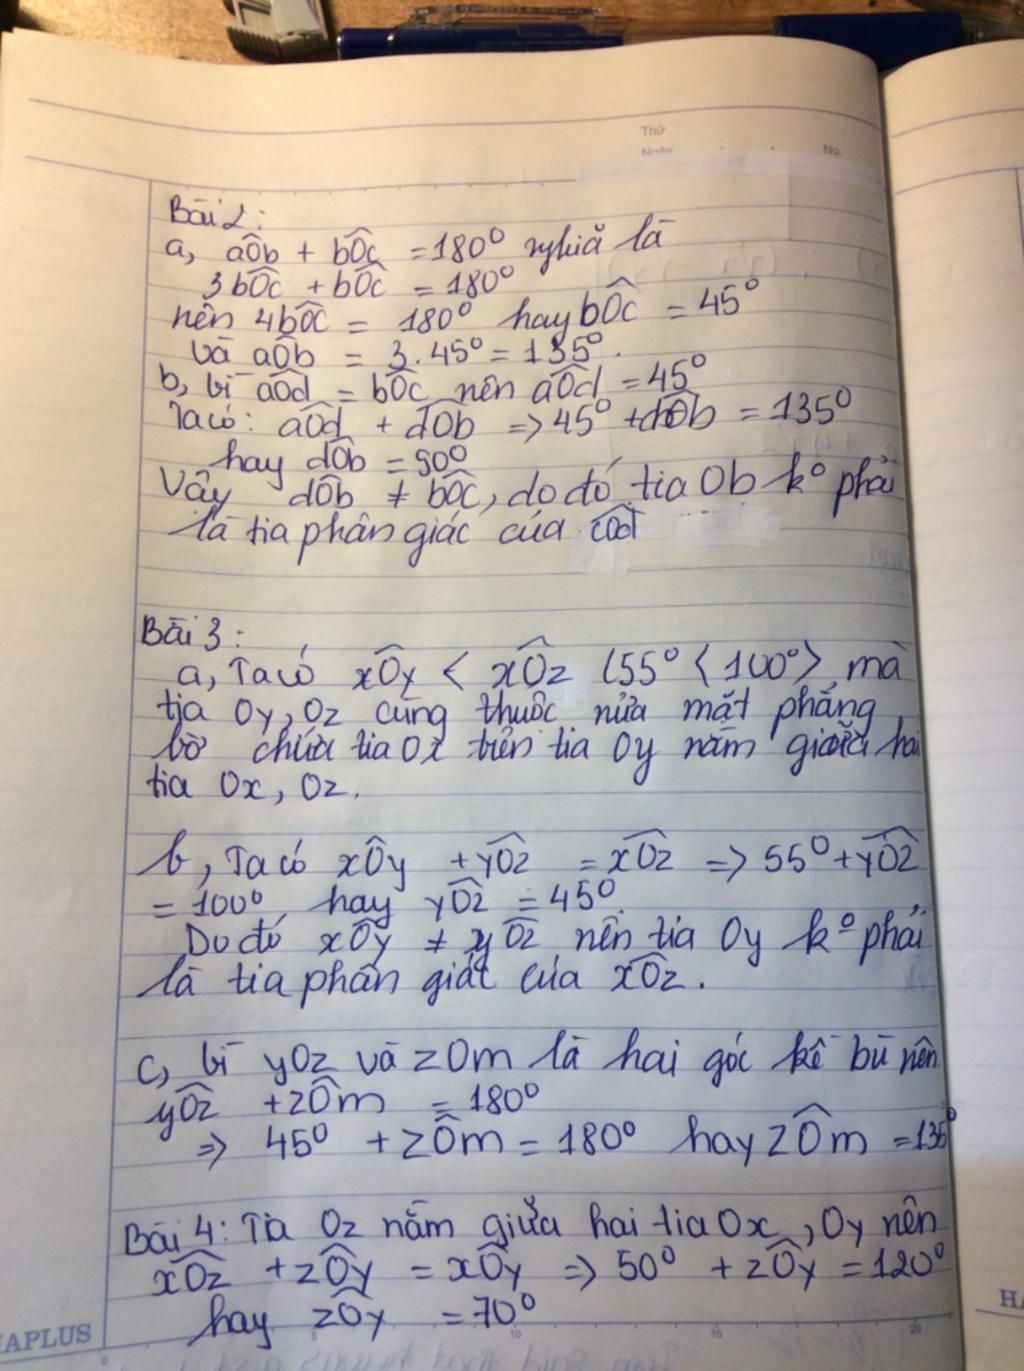 Thứ
Ngày No.
Bài 2:
a, aÔb + bÔc = 180° nghiã là
3 bÔc + bÔc = 180°
nên 4bÔc = 180° hay bÔc = 45°
Và aÔb = 3.45° = 135°.
b, bì aÔd = bÔc nên aÔd = 45°
Ta có: aÔd + dÔb => 45° + dÔb = 135°
hay dÔb = 90°
Vậy dÔb ≠ bÔc, do đó tia Ob k° phải
là tia phân giác của cÔd
Bài 3:
a, Ta có xÔy < xÔz (55° < 100°), mà
tia Oy, Oz cùng thuộc nửa mặt phẳng
bờ chứa tia Ox trên tia Oy nằm giữa hai
tia Ox, Oz.
b, Ta có xÔy + yÔz = xÔz => 55° + yÔz
= 100°, hay yÔz = 45°
Do đó xÔy ≠ yÔz nên tia Oy k° phải
là tia phân giác của xÔz.
c, bì yOz và zOm là hai góc kề bù nên
yÔz + zÔm = 180°
=> 45° + zÔm = 180° hay zÔm = 135°
Bài 4: Tia Oz nằm giữa hai tia Ox, Oy nên
xÔz + zÔy = xÔy => 50° + zÔy = 120°
hay zÔy = 70°
HAPLUS